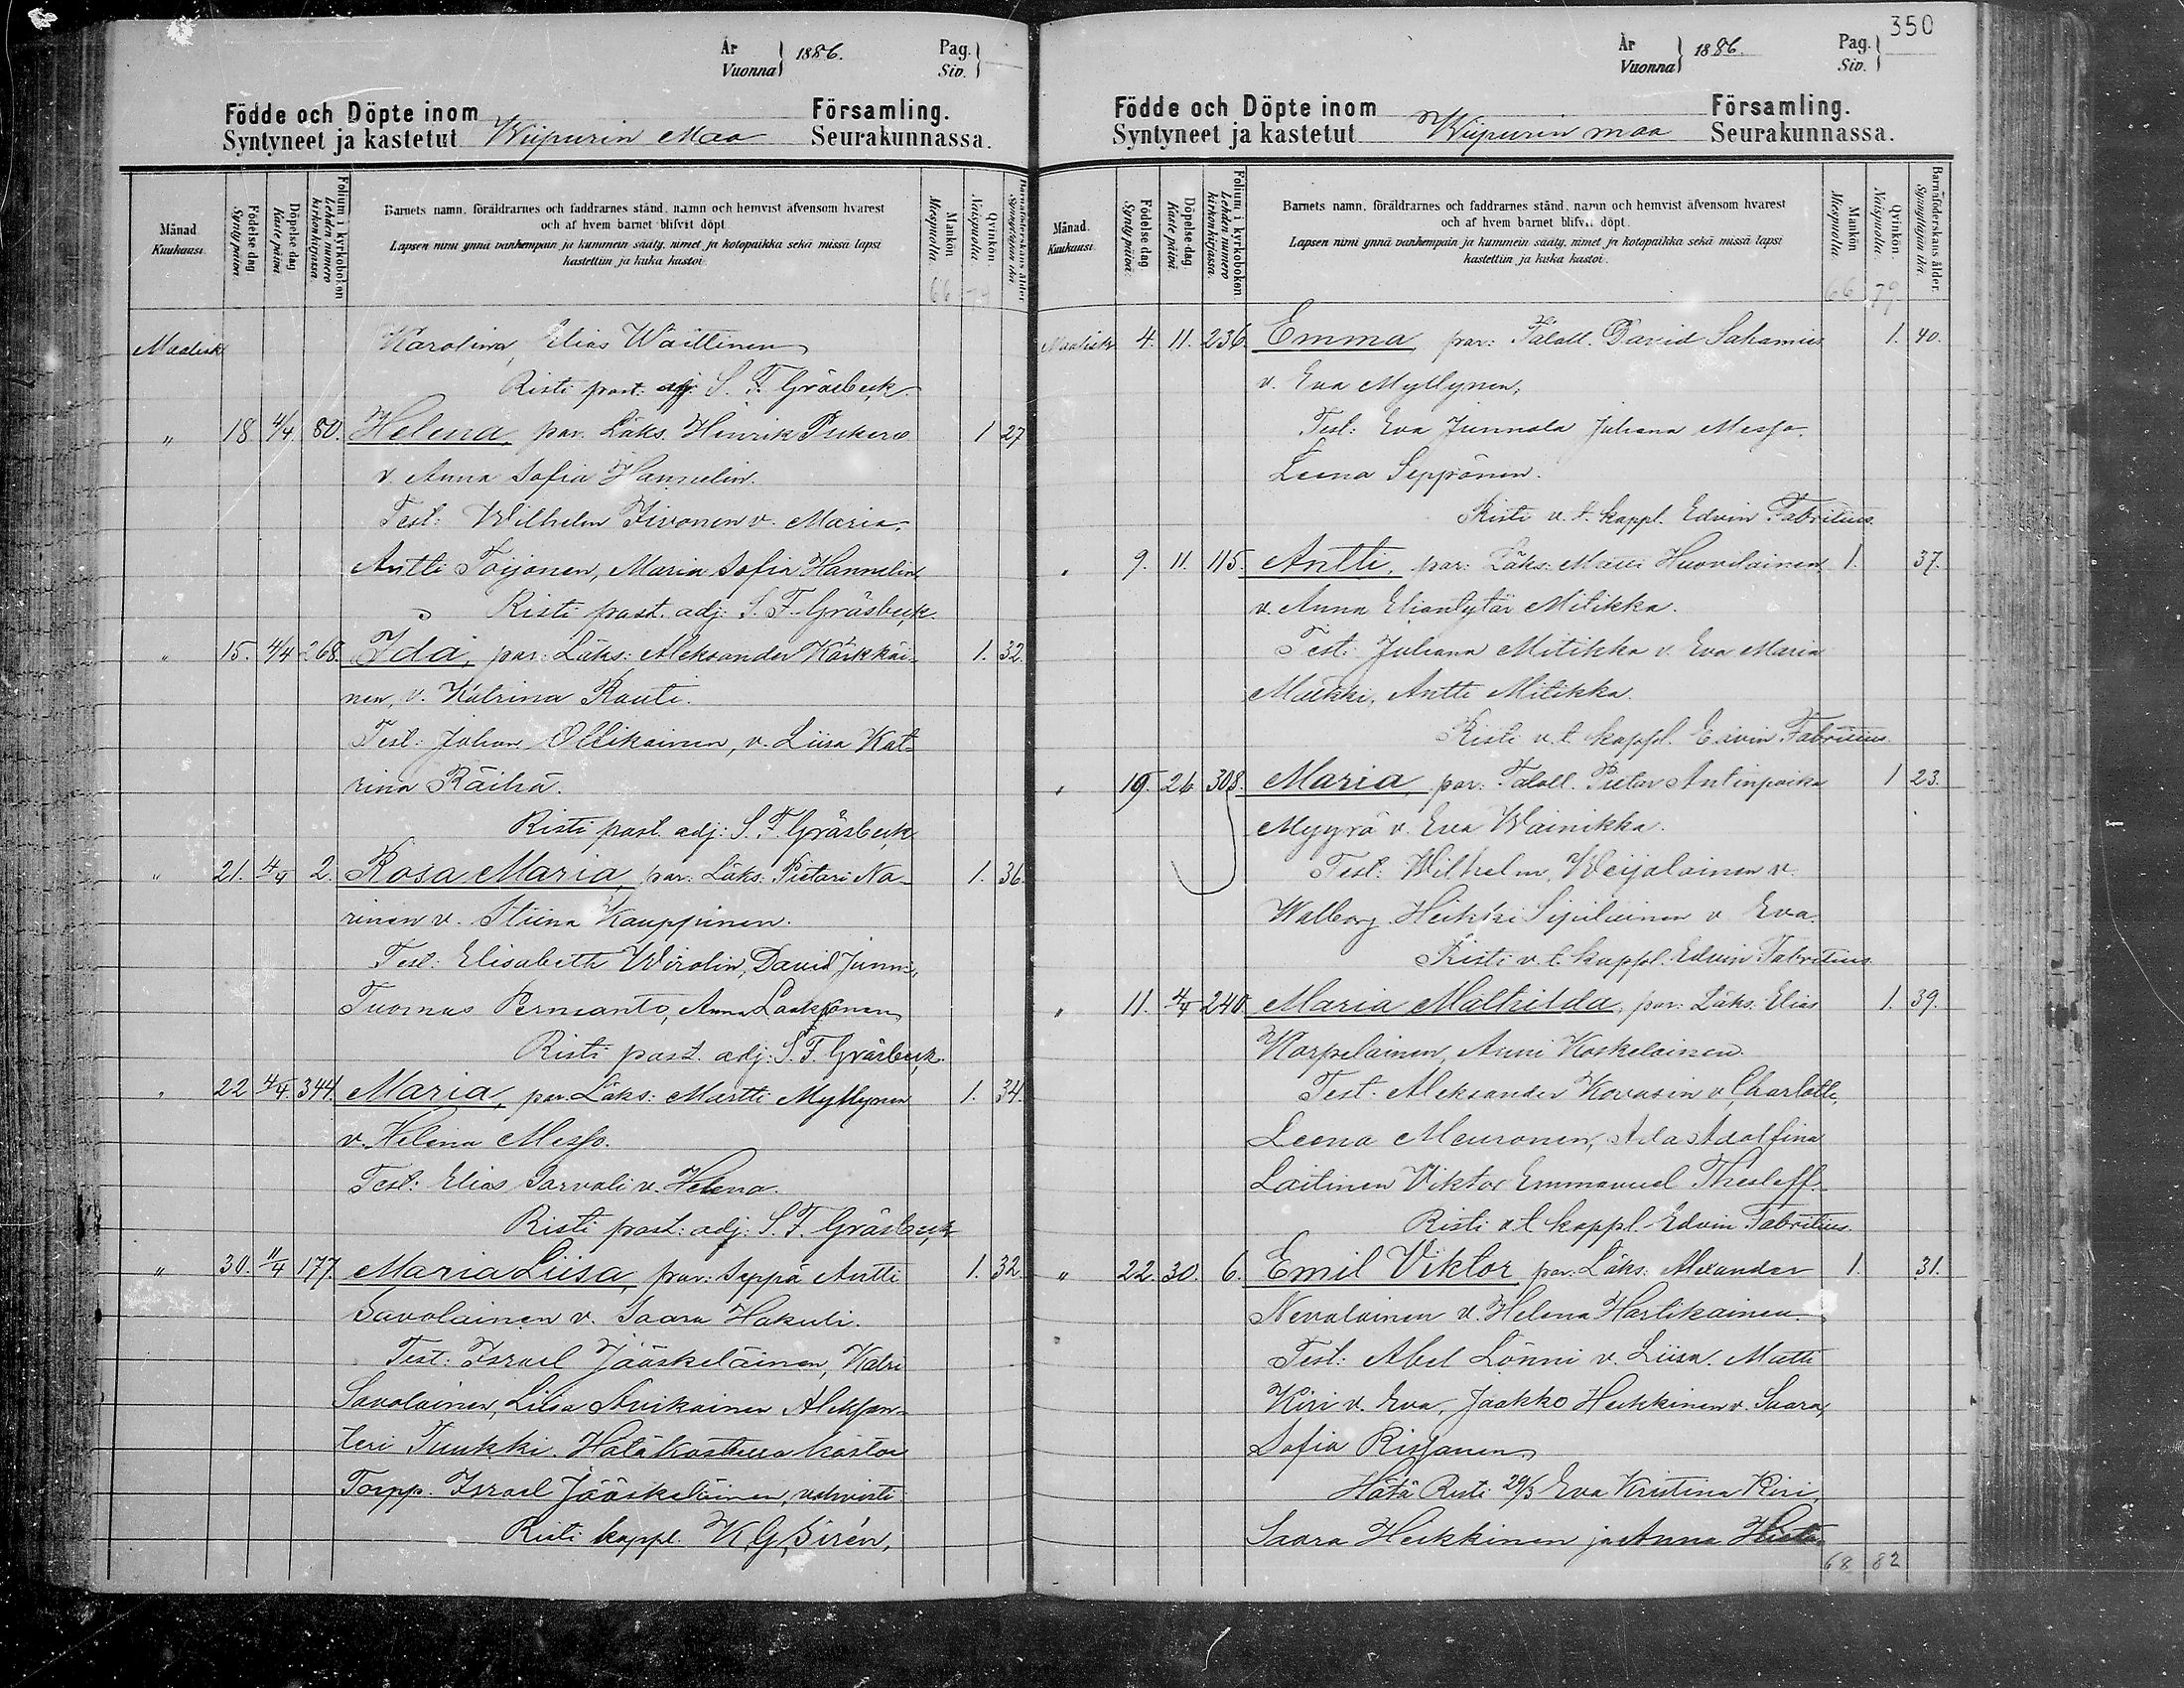 År
Vuonna } 1886.
Pag.
Siv. }
Födde och Döpte inom
Församling.
Syntyneet ja kastetut Wiipurin Maa Seurakunnassa.
Månad
Kuukausi.
Födelse dag
Synty päivä.
Döpelse dag
Kaste päivä.
Folium i kyrkoboken
Lehden numero
kirkon kirjassa.
Barnets namn, föräldrarnes och faddrarnes stånd, namn och hemvist äfvensom hvarest
och af hvem barnet blifvit döpt.
Lapsen nimi ynnä vanhempain ja kummein sääty, nimet ja kotopaikka sekä missä lapsi
kastettiin ja kuka kastoi.
Mankön
Miespuolia.
Qvinkön.
Naispuolia.
Barnaföderskans ålder
Synnyttäjän ikä
66
Maalisk. Karolina, Elias Wäittinen
Risti past. adj. S. F. Gräsbeck.
" 18 4/4. 80. Helena, par. Läks. Henrik Pukero 1 27
v. Anna Sofia Hannelin.
Test: Wilhelm Iivonen v. Maria,
Antti Toijonen, Maria Sofia Hannelin,
Risti past. adj: S. F. Gräsbeck.
" 15. 4/4 268. Ida, par: Läks: Aleksander Kärkkäi- 1. 32.
nen, v. Katrina Rauti.
Test: Johan Ollikainen, v. Liisa Kat-
rina Räihä.
Risti past. adj: S. F. Gräsbeck
" 21. 4/4 2. Rosa Maria, par: Läks: Pietari Na- 1. 36.
rinen v. Stiina Kauppinen.
Test: Elisabeth Wirolin, David Junni,
Tuomas Pernanto, Anna Laakkonen
Risti past. adj: S. F. Gräsbeck.
" 22 4/4. 344. Maria, par. Läks: Martti Myllynen 1. 34.
v. Helena Messo.
Test: Elias Sarvali v. Helena.
Risti past: adj: S. F. Gräsbeck
" 30. 11/4 177. Maria Liisa, par: Seppä Antti 1. 32.
Savolainen v. Saara Hakuli.
Test: Israel Jääskeläinen, Katri
Savolainen, Liisa Avikainen Aleksan-
teri Tuukki. Hätäkasteen kastoi
Torpp. Israel Jääskeläinen, vahvisti
Risti kappl. K. G. Sirén,
350
År
Vuonna } 1886.
Pag.
Siv. }
Födde och Döpte inom
Församling.
Syntyneet ja kastetut Wiipurin maa Seurakunnassa.
Månad.
Kuukausi.
Födelse dag
Synty päivä.
Döpelse dag
Kaste päivä.
Folium i kyrkoboken
Lehden numero
kirkon kirjassa.
Barnets namn, föräldrarnes och faddrarnes stånd, namn och hemvist äfvensom hvarest
och af hvem barnet blifvit döpt.
Lapsen nimi ynnä vanhempain ja kummein sääty, nimet ja kotopaikka sekä missä lapsi
kastettiin ja kuka kastoi.
Mankön
Miespuolia.
Qvinkön.
Naispuolia.
Barnaföderskans ålder.
Synnyttäjän ikä.
66 79
Maalisk 4. 11. 236. Emma, par: Taloll. David Sahamies 1. 40.
v. Eva Myllynen,
Test: Eva Junnola Juhana Messo.
Leena Seppänen.
Risti v. t. kappl. Edvin Fabritius
" 9. 11. 115. Antti, par: Läks: Matti Huovilainen 1. 37.
v. Anna Eliantytär Mitikka.
Test: Juhana Mitikka v. Eva Maria
Muikki, Antti Mitikka.
Risti v. t. kappl. Edvin Fabritius.
" 19. 26 308. Maria, par: Taloll. Pietar Antinpoika 1 23.
Myyrä v. Eva Wainikka.
Test: Wilhelm Weijalainen v.
Walborg. Heikki Sipilainen v Eva.
Risti v. t. kappl. Edvin Fabritius
" 11. 4/4 240. Maria Mathilda, par: Läks. Elias 1. 39.
Karpelainen, Anni Koskelainen.
Test: Aleksander Kovasin v Charlotte,
Leena Meuronen, Ada Adolfina
Laitinen Viktor Emmanuel Thesleff.
Risti v t kappl. Edvin Fabritius.
" 22. 30. 6. Emil Viktor par: Läks: Alexander 1. 31.
Nevalainen v. Helena Harlikainen.
Test: Abel Lönni v. Liisa. Matti
Kiri v. Eva, Jaakko Heikkinen v. Saara,
Sofia Rissanen
Hätä Risti 29/3 Eva Kristina Kiri,
Saara Heikkinen ja Anna
68 82